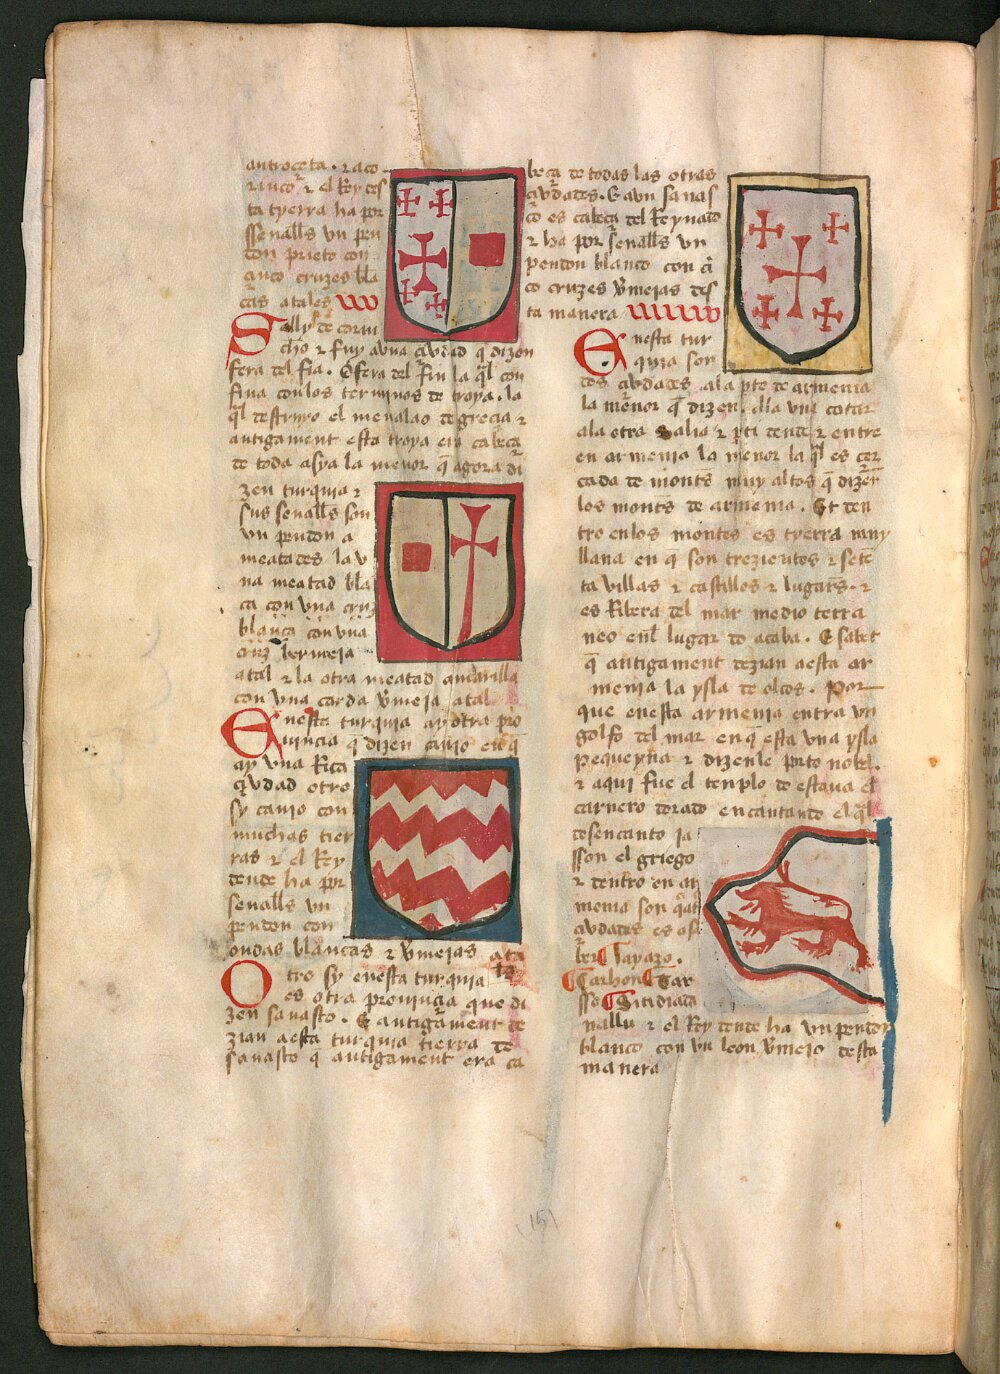 antioceta. ⁊ aco
⁊ inco ⁊ el Rey des
ta tyerra ha por
ssenalls vn pen
don prieto con
çinco cruzes bla
cas atales
Sally de coru
cho ⁊ fuy avna çivdad q̃ dizen
fera del fin. Esfera del fin la q̃l con
fina con los terminos de troya. la
q̃l destruyo el menalao de greçia ⁊
antigament esta troya era cabeça
de toda asya la menor q̃ agora di
zen turquia ⁊
sus senalls son
vn pendon a
meatades la v
na meatad bla
ca con vna cruz
blanca con vna
cruz bermeja
atal ⁊ la otra meatad amarilla
con vna carda ṽmeja atal
Enesta turquia ay otra pro
uinçia q̃ dizen canio en q̃
ay vna Rica
çivdad otro
sy canio con
muchas tier
ras ⁊ el Rey
dende ha por
senalls vn
pendon con
ondas blancas ⁊ ṽmejas ata
les
Otro sy enesta turquia
es otra prouinçia que di
zen sauasto. E antigament de
zian aesta turquia tierra de
sauasto q̃ antigament era ca
beça de todas las otras
çivdades. E avn sanas
to es cabeça del Reynado
⁊ ha por senalls vn
pendon blanco con çi
co cruzes ṽmejas des
ta manera
Enesta tur
quia son
dos çivdades ala p̃te de armenia
la menor q̃ dizen. ala vna cotar
ala otra salia ⁊ p̃ti dende ⁊ entre
en armenia la menor la q̃l es çer
cada de montes muy altos q̃ dizen
los montes de armenia. Et den
tro en los montes es tyerra muy
llana en q̃ son trezientos ⁊ sete
ta villas ⁊ castillos ⁊ lugares. ⁊
es Ribera del mar medio terra
neo enl lugar do acaba. E sabet
q̃ antigament dezian aesta ar
menia la ysla de olcos. Por
que enesta armenia entra vn
golfo del mar en q̃ esta vna ysla
pequeyña ⁊ dizenle porto nobel.
⁊ aqui fue el templo do estaua el
carnero dorado encantando el q̃l
desencanto ja
sson el griego
⁊ dentro en ar
menia son q̃at
çivdades es asa
ber Layazo.
Carhon Tar
sso Sitidiada
nallu ⁊ el Rey dende ha vn pendon
blanco con vn leon ṽmejo desta
manera
(15)